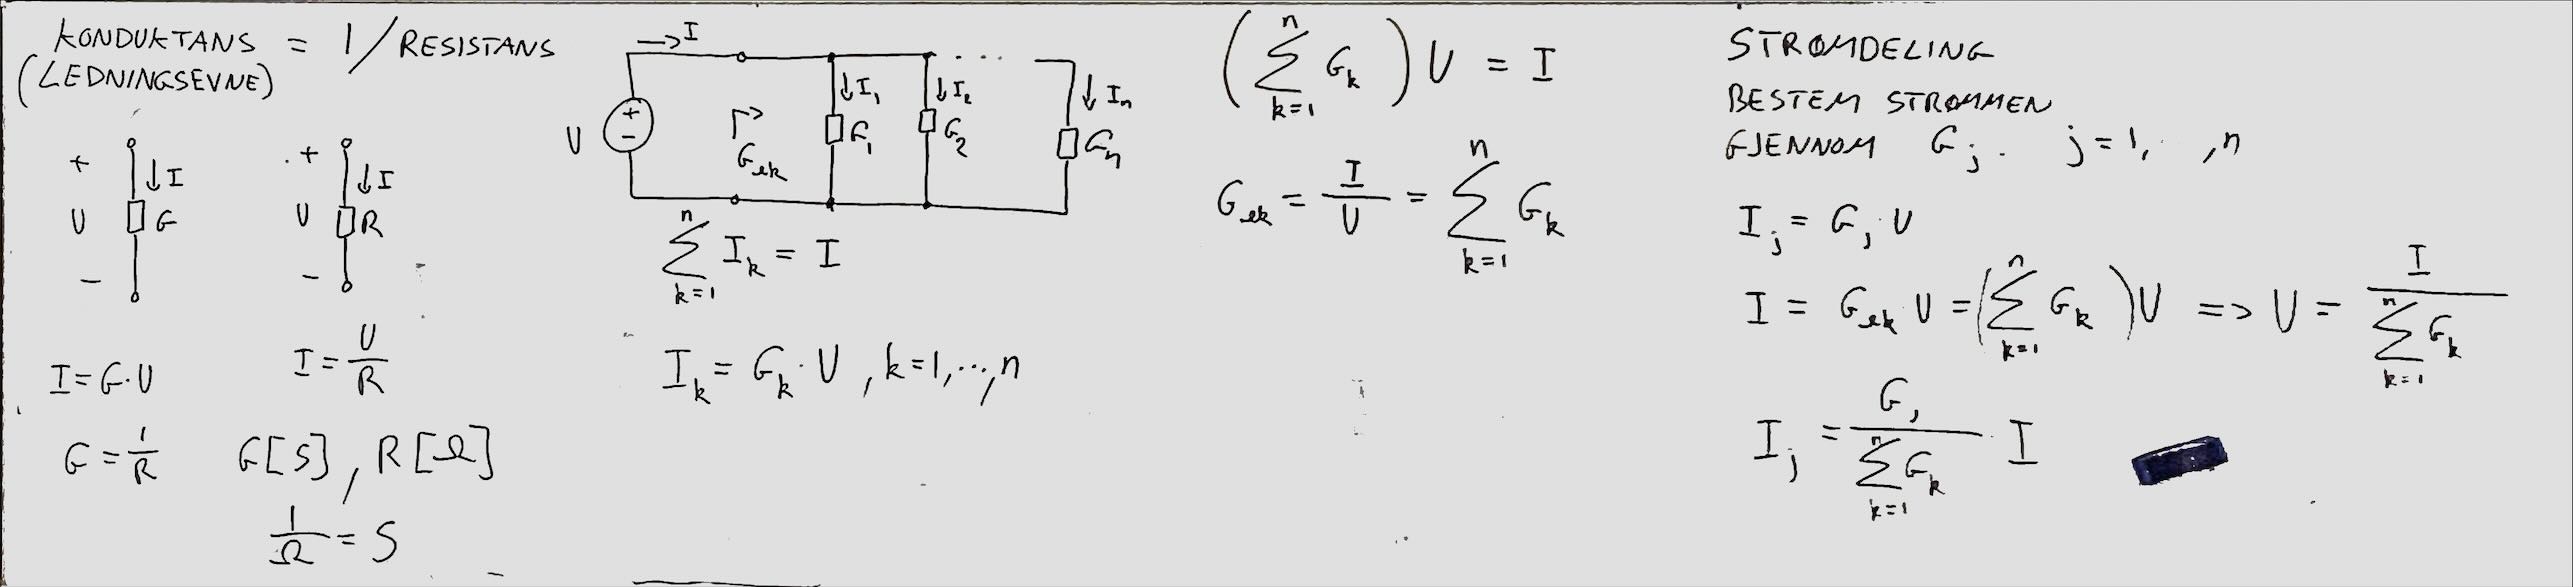 KONDUKTANS = 1/RESISTANS
(LEDNINGSEVNE)
+ U - ↓I G
+ U - ↓I R
I = G·U
I = U/R
G = 1/R
G[S], R[Ω]
1/Ω = S
→I
U + -
G_ek
↓I_1 G_1
↓I_2 G_2
....
↓I_n G_n
∑_{k=1}^{n} I_k = I
I_k = G_k · U, k=1,...,n
(∑_{k=1}^{n} G_k) U = I
G_ek = I/U = ∑_{k=1}^{n} G_k
STRØMDELING
BESTEM STRØMMEN
GJENNOM G_j. j=1,..,n
I_j = G_j · U
I = G_ek U = (∑_{k=1}^{n} G_k) U => U = I / ∑_{k=1}^{n} G_k
I_j = G_j / ∑_{k=1}^{n} G_k · I